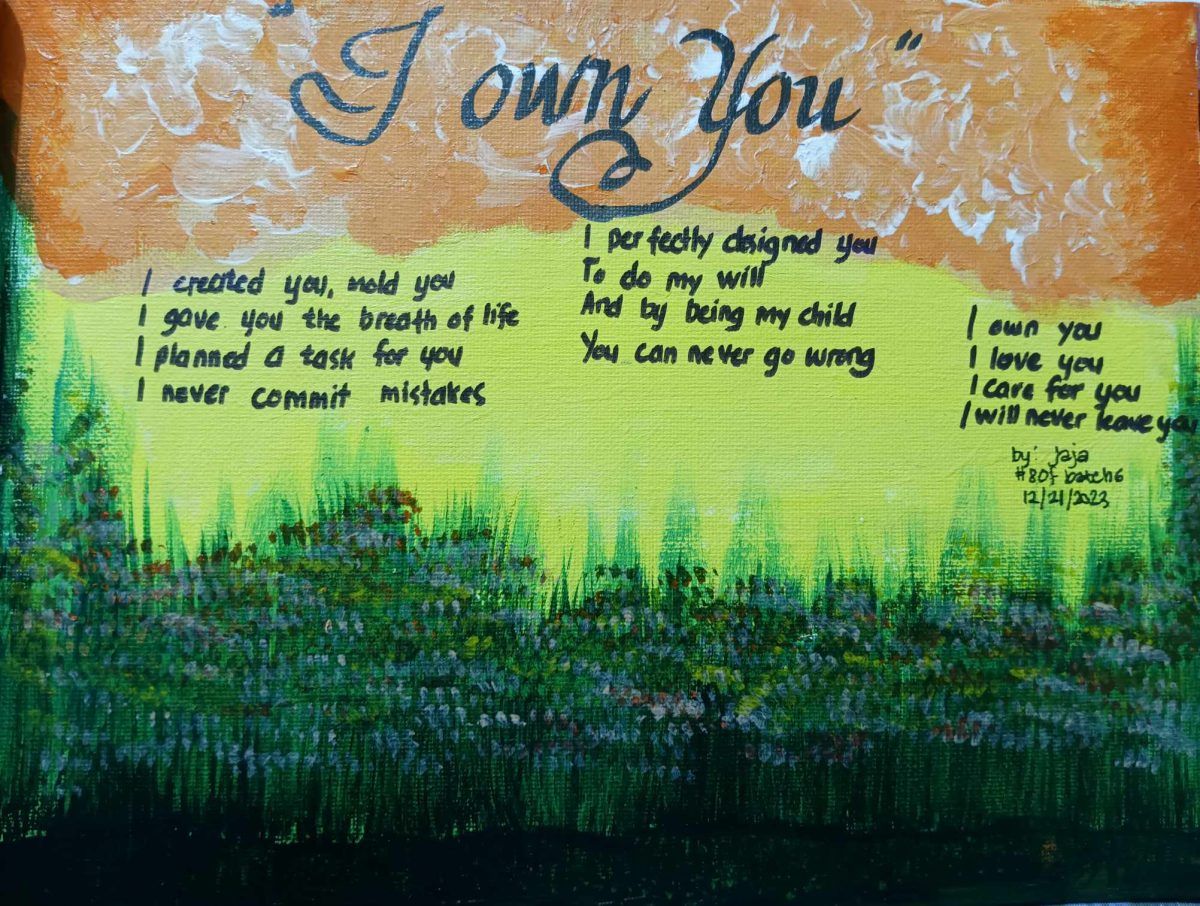 "I own You"
I created you, mold you
I gave you the breath of life
I planned a task for you
I never commit mistakes
I perfectly designed you
To do my will
And by being my child
You can never go wrong
I own you
I love you
I care for you
I will never leave you
by: jaja
#80f batch6
12/21/2023